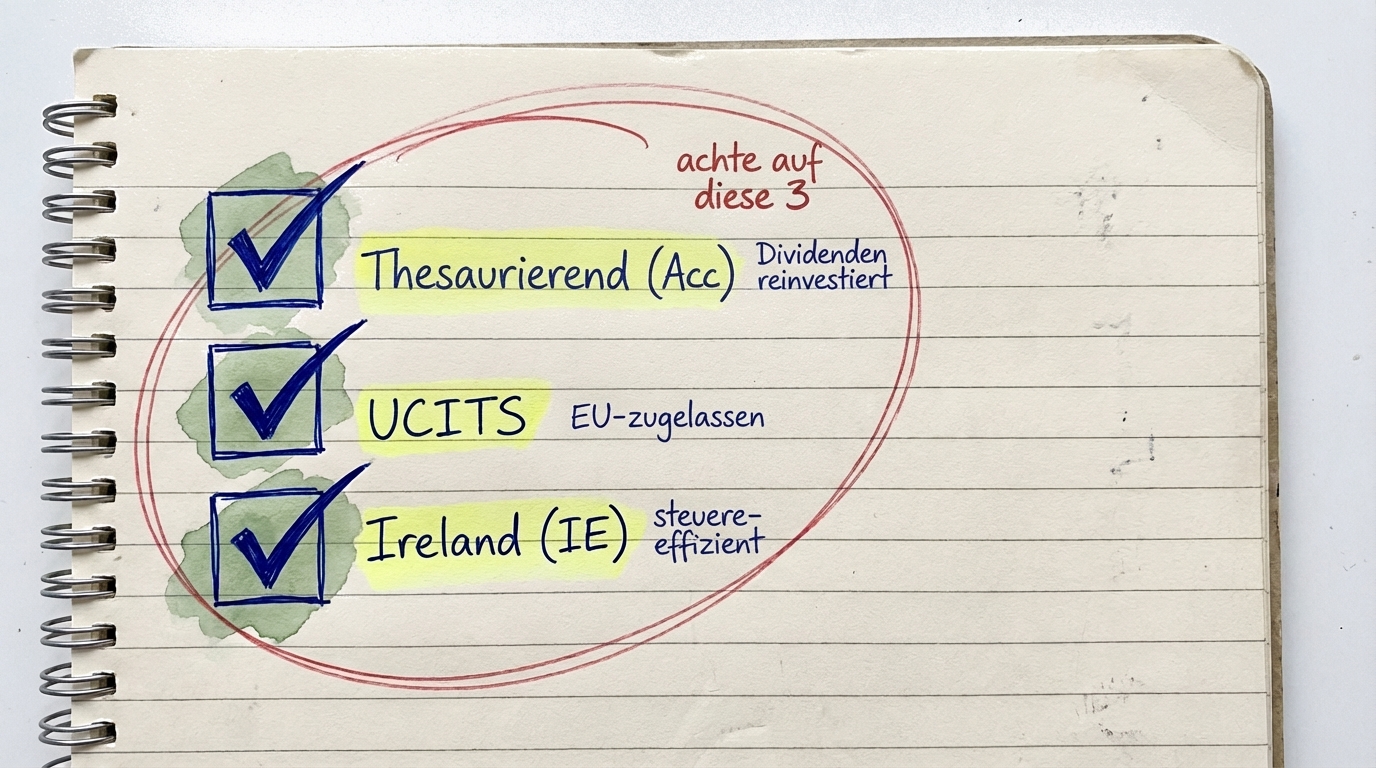 achte auf
diese 3
Thesaurierend (Acc)
Dividenden
reinvestiert
UCITS
EU-zugelassen
Ireland (IE)
steuere-
effizient